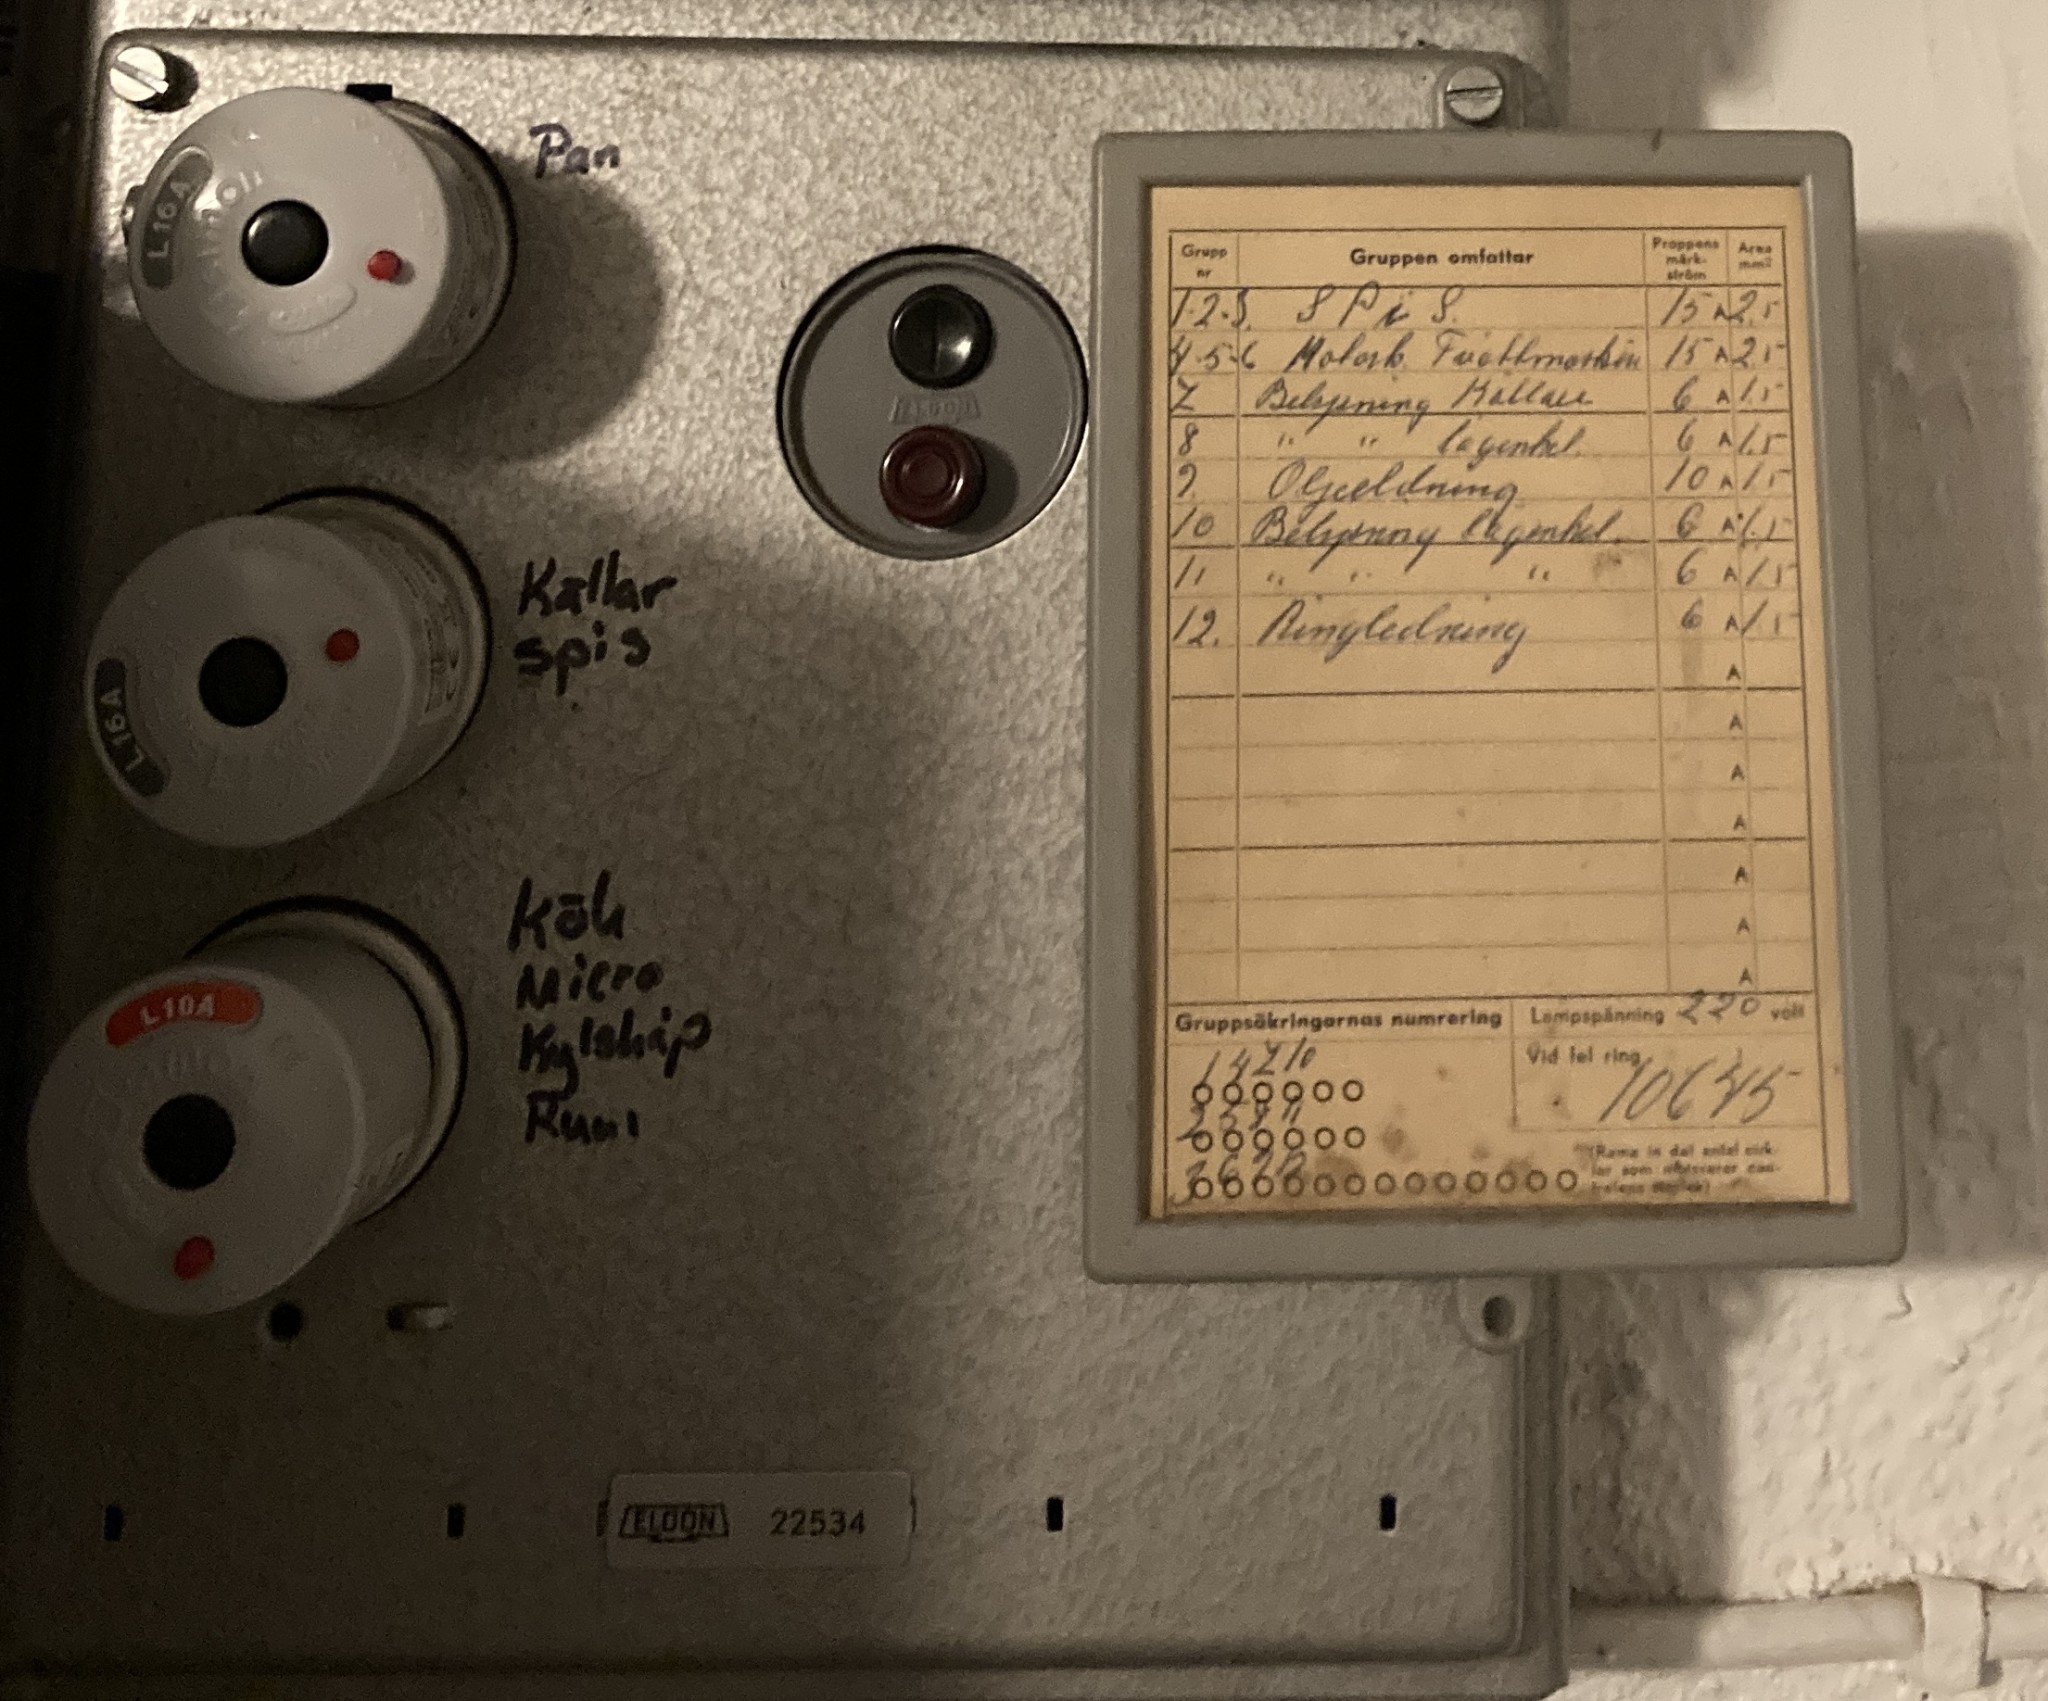 Pan
L16A
ELDON
Källar
spis
L16A
Kök
Micro
Kylskåp
L10A
ELDON 22534
Grupp nr Gruppen omfattar Proppens märk-ström Area mm²
1-2-3. SPiS. 15 A 2.5
4-5-6 Motork. Tvättmaskin 15 A 2.5
7 Belysning Källare 6 A 1.5
8 " " lägenhet. 6 A 1.5
9. Oljeeldning 10 A 1.5
10 Belysning lägenhet. 6 A 1.5
11 " " " 6 A 1.5
12. Ringledning 6 A 1.5
A
A
A
A
A
A
A
Gruppsäkringarnas numrering
1 4 7 10
2 5 8 11
3 6 9 12
Lampspänning 220 volt
Vid fel ring
10645
(Rama in det antal cirk-
lar som motsvarar cen-
tralens storlek)